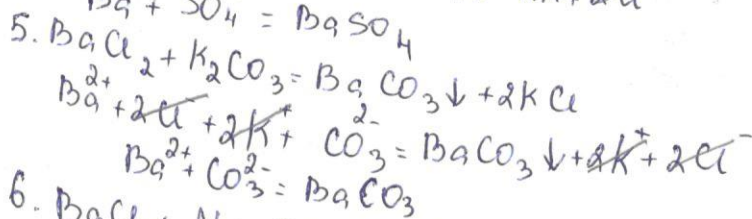 Ba + SO₄ = BaSO₄
5. BaCl₂ + K₂CO₃ = BaCO₃↓ + 2KCl
Ba²⁺ + 2Cl⁻ + 2K⁺ + CO₃²⁻ = BaCO₃↓ + 2K⁺ + 2Cl⁻
Ba²⁺ + CO₃²⁻ = BaCO₃
6. BaCl